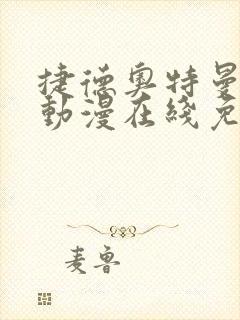 捷德奥特曼
動漫在綫免
麦鲁